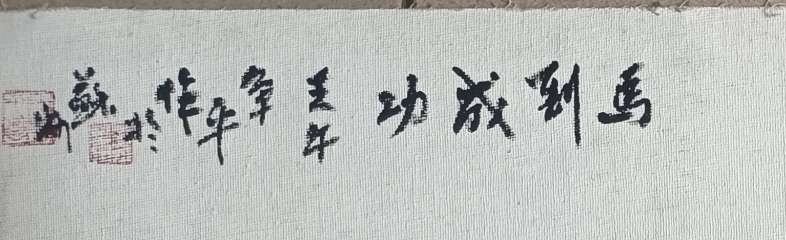 馬到成功 壬午 平作於蘇州